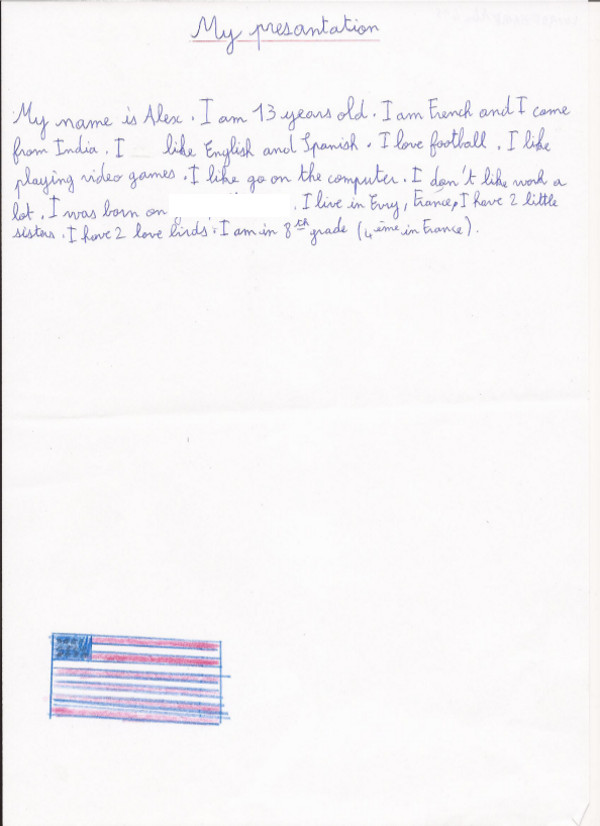 My presantation
My name is Alex. I am 13 years old. I am French and I come
from India. I like English and Spanish. I love football. I like
playing video games. I like go on the computer. I don't like work a
lot. I was born on . I live in Evry, France, I have 2 little
sisters. I have 2 love birds. I am in 8th grade (4ème in France).